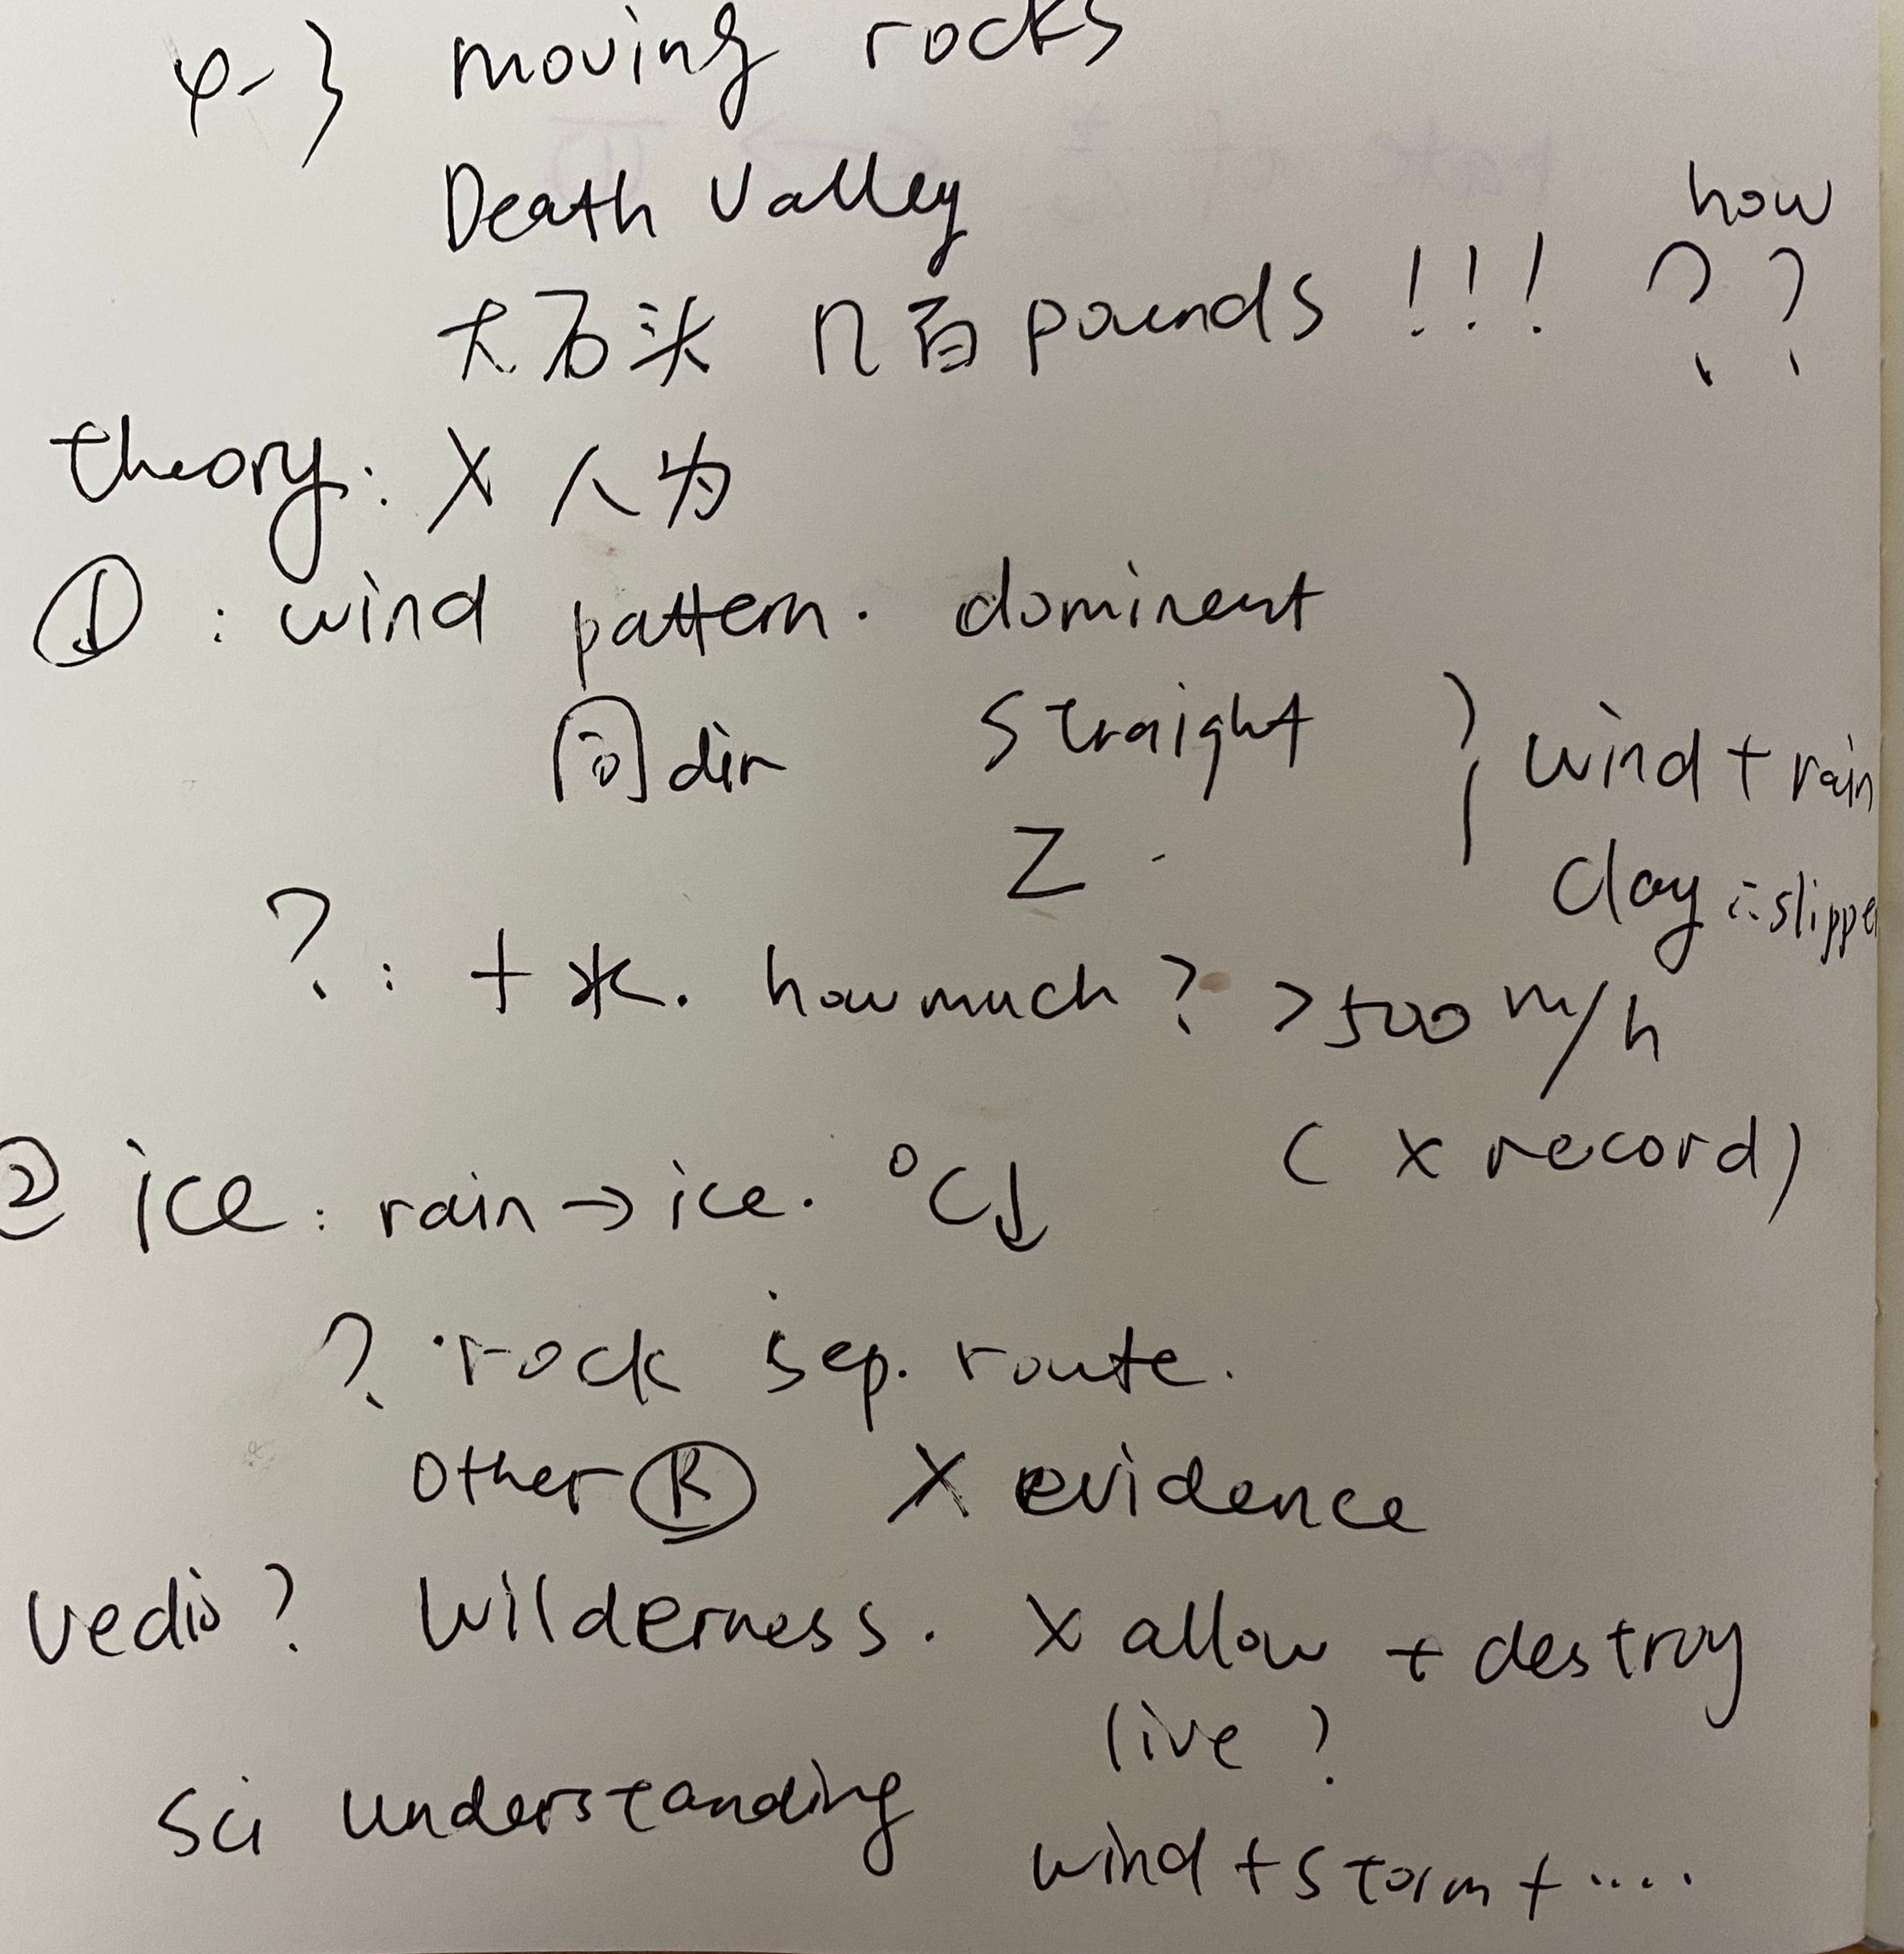 4-3 moving rocks
Death Valley how
大石头 几百 pounds !!! ??
theory: X 人为
① : wind pattern. dominent
同 dir straight } wind + rain
Z clay ∴ slippe
? : + 水. how much? >500 m/h
(x record)
② ice: rain → ice. °C↓
? rock sep. route.
other Ⓡ X evidence
vedio? Wilderness. X allow + destroy
live ?
sci understanding
wind + storm + ....